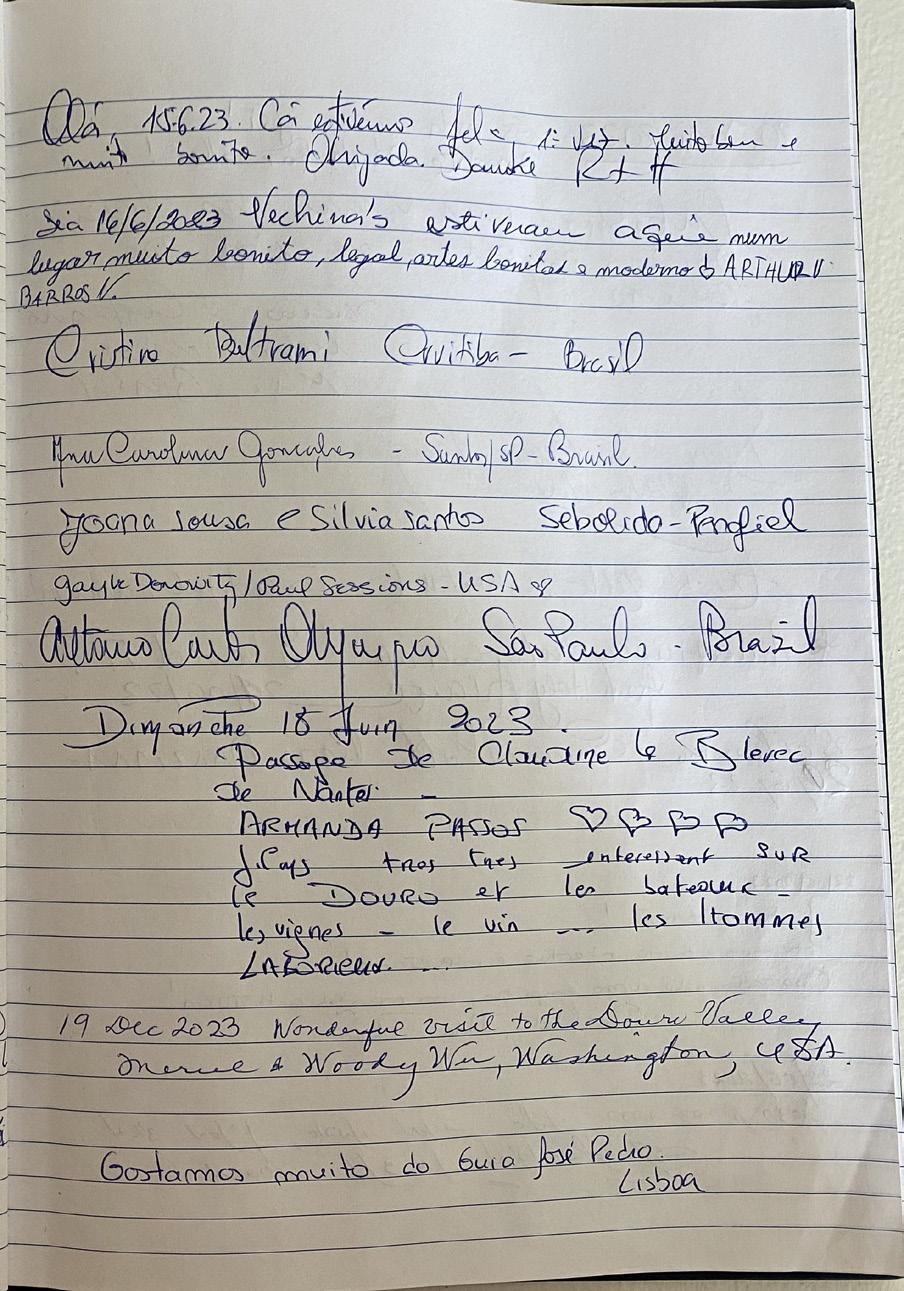 Olá, 15.6.23. Cá estivémos pela 1ª vez. Muito bem e
muito bonito. Obrigada. Danke R + H
Dia 16/6/2023 Vechina's estiveram aqui num
lugar muito bonito, legal, artes bonitas e moderno ARTHUR V.
BARROS V.
Cristina Beltrami Curitiba - Brasil
Ana Carolina Gonçalves - Santos/SP - Brasil.
Joana Sousa e Silvia Santos Sebolido - Penafiel
Gayle Donowitz / Paul Sessions - USA
Carlos Olympio São Paulo - Brazil
Dimanche 18 Juin 2023.
Passage de Claudine Le Blevec
de Nantes -
ARMANDA PASSOS ♡ ♡ ♡ ♡
tres tres interessant SUR
le DOURO et les bateaux -
les vignes - le vin ... les Hommes
LABORIEUX ....
19 Dec 2023 Wonderful visit to the Douro Valley
& Woody Wu, Washington, USA.
Gostamos muito do Guia José Pedro.
Lisboa